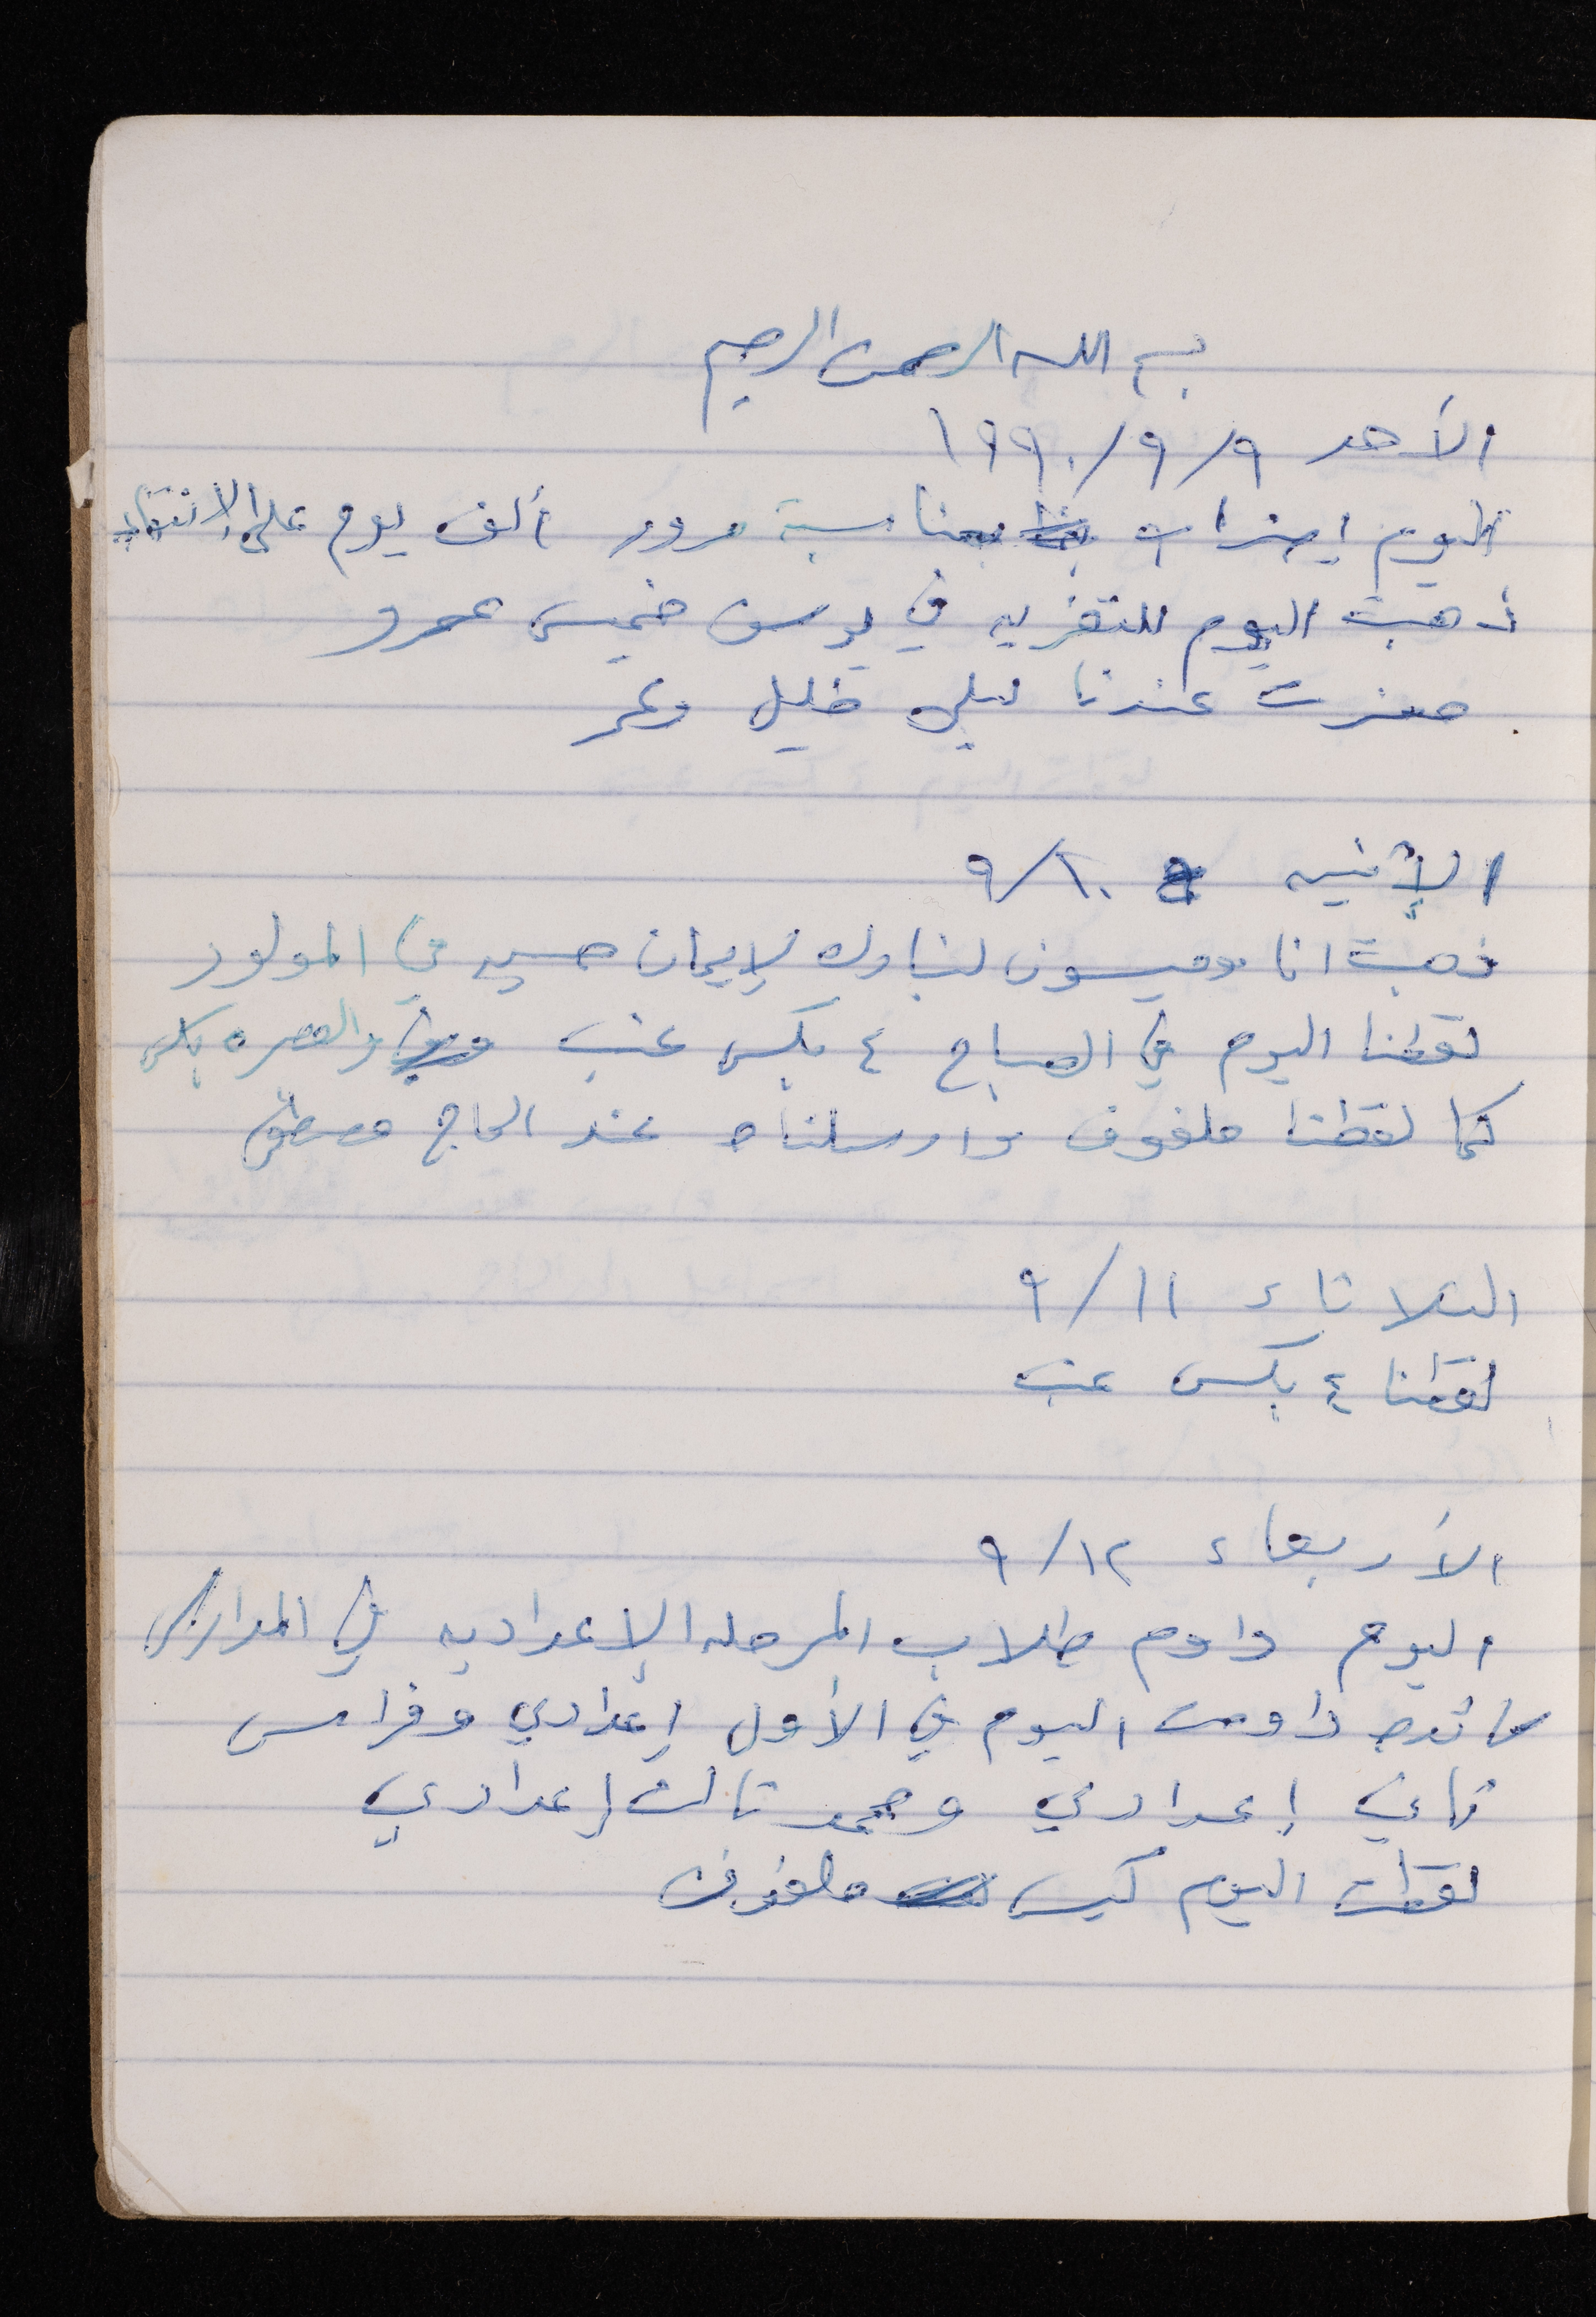 بسم الله الرحمن الرحيم
الأحد ٩/٩/١٩٩٠
اليوم إضراب بمناسبة مرور ألف يوم على الإنتفاضه
ذهبت اليوم للتعزيه في خميس عمرو
حضرت عندنا ليلى خليل وعمر
الإثنين ٩/١٠
ذهبت انا وميسون لنبارك لإيمان حسين في المولود
لقطنا اليوم في الصباح ٤ بكس عنب والعصر ٥ بكس
كما لقطنا ملفوف وارسلناه عند الحاج مصطفى
الثلاثاء ٩/١١
لقطنا ٤ بكس عنب
الأربعاء ٩/١٢
اليوم داوم طلاب المرحله الإعداديه في المدارس
داومت اليوم في الأول إعدادي وفراس
ثاني إعدادي ومحمد ثالث إعدادي
لقطت اليوم كيس ملفوف